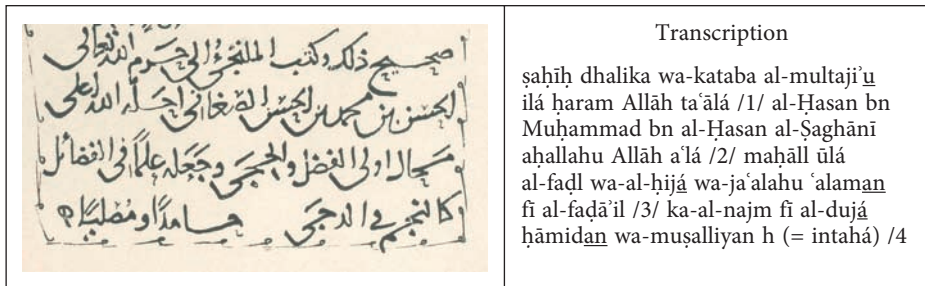 صحيح ذلك وكتب الملتجئ الى حرم الله تعالى
الحسن بن محمد بن الحسن الصغاني احله الله اعلى
محال اولى الفضل والحجى وجعله علماً فى الفضائل
كالنجم في الدجى حامداً ومصلياً ه
Transcription
ṣaḥīḥ dhalika wa-kataba al-multajiʾu
ilá ḥaram Allāh taʿālá /1/ al-Ḥasan bn
Muḥammad bn al-Ḥasan al-Ṣaghānī
aḥallahu Allāh aʿlá /2/ maḥāll ūlá
al-faḍl wa-al-ḥijá wa-jaʿalahu ʿalaman
fī al-faḍāʾil /3/ ka-al-najm fī al-dujá
ḥāmidan wa-muṣalliyan h (= intahá) /4